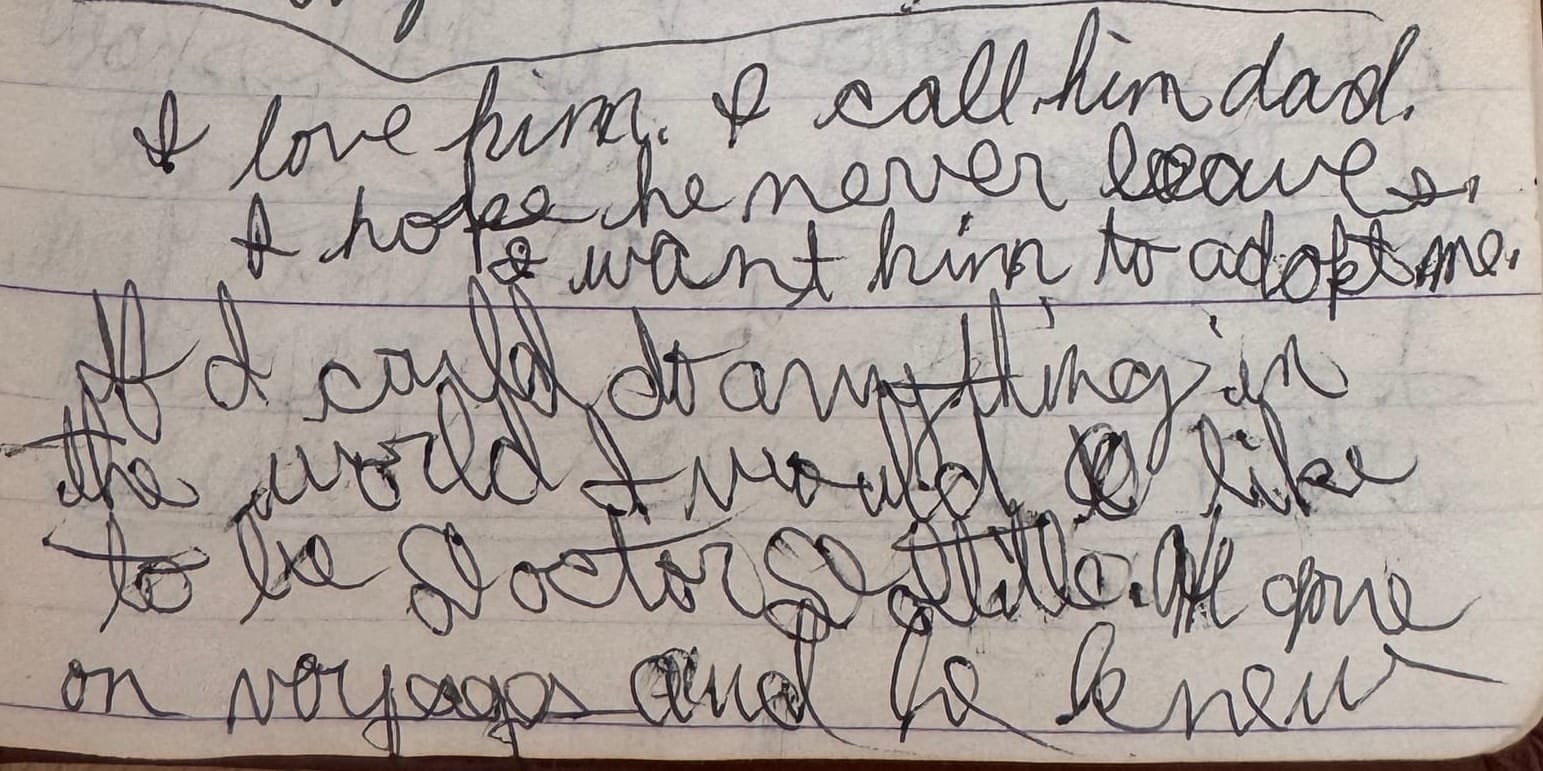 I love him. I call him dad.
I hope he never leaves.
I want him to adopt me.
If I could do anything in
the world I would like
to be Doctor
on voyages and he knew